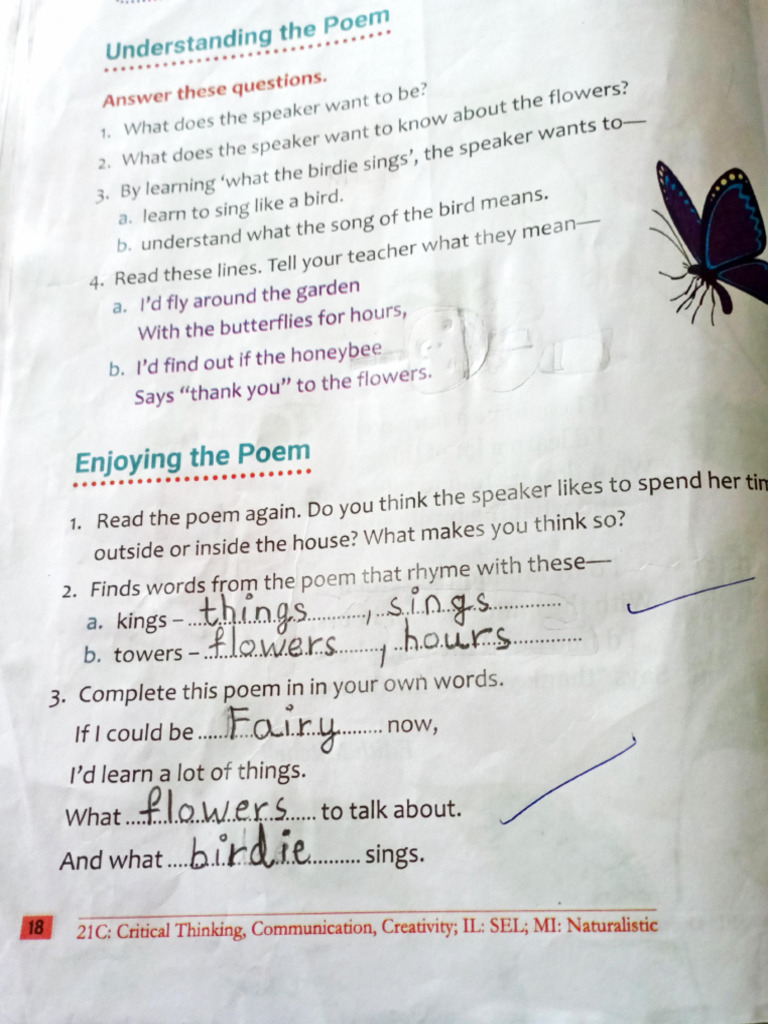 Understanding the Poem
Answer these questions.
1. What does the speaker want to be?
2. What does the speaker want to know about the flowers?
3. By learning ‘what the birdie sings’, the speaker wants to—
a. learn to sing like a bird.
b. understand what the song of the bird means.
4. Read these lines. Tell your teacher what they mean—
a. I’d fly around the garden
With the butterflies for hours,
b. I’d find out if the honeybee
Says “thank you” to the flowers.
Enjoying the Poem
1. Read the poem again. Do you think the speaker likes to spend her tim
outside or inside the house? What makes you think so?
2. Finds words from the poem that rhyme with these—
a. kings – things, sings
b. towers – flowers, hours
3. Complete this poem in in your own words.
If I could be Fairy now,
I’d learn a lot of things.
What flowers to talk about.
And what birdie sings.
18 21C: Critical Thinking, Communication, Creativity; IL: SEL; MI: Naturalistic